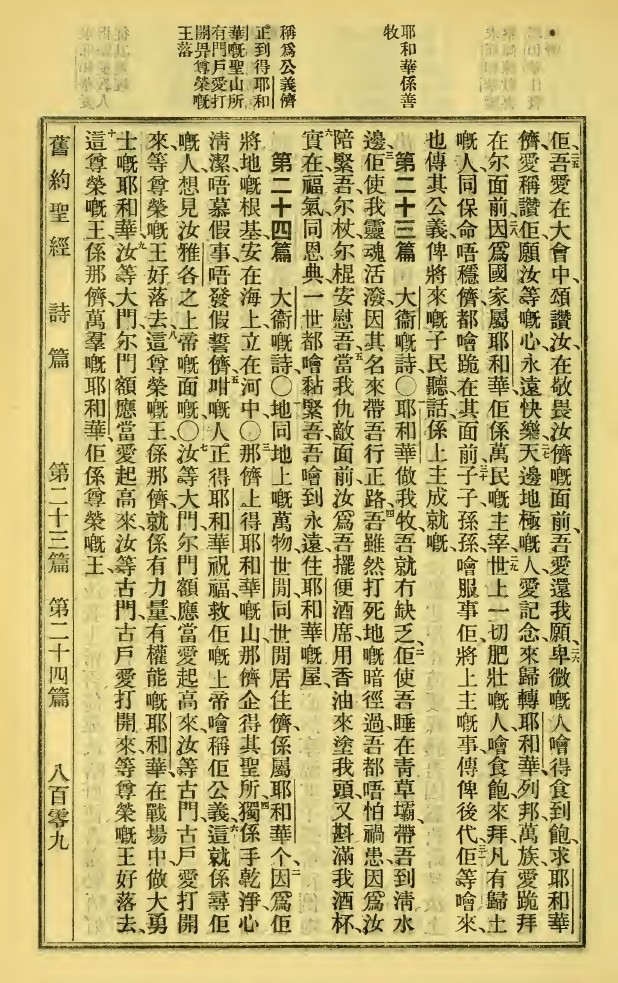 耶和華係善
牧
稱爲公義儕
正到得耶和
華嘅聖山所
有門戶愛打
開畀尊榮嘅
王落
佢、吾愛在大會中、頌讚汝、在敬畏汝儕嘅面前、吾愛還我願、卑微嘅人噲得食到飽、求耶和華
儕、愛稱讚佢、願汝等嘅心永遠快樂、天邊地極嘅人、愛記念來歸轉耶和華、列邦萬族、愛跪拜
在尔面前、因爲國家屬耶和華、佢係萬民嘅主宰、世上一切肥壯嘅人、噲食飽來拜、凡有歸土
嘅人、同保命唔穩儕、都噲跪在其面前、子子孫孫噲服事佢、將上主嘅事傳俾後代、佢等噲來、
也傳其公義俾將來嘅子民聽、話係上主成就嘅、
第二十三篇 大衞嘅詩〇耶和華做我牧、吾就冇缺乏、佢使吾睡在靑草壩、帶吾到淸水
邊、佢使我靈魂活潑、因其名來帶吾行正路、吾雖然打死地嘅暗徑過、吾都唔怕禍患、因爲汝
陪緊吾、尔杖尔棍安慰吾、當我仇敵面前、汝爲吾擺便酒席、用香油來塗我頭、又斟滿我酒杯、
實在福氣同恩典、一世都噲黏緊吾、吾噲到永遠住耶和華嘅屋、
第二十四篇 大衞嘅詩〇地同地上嘅萬物、世閒同世閒居住儕、係屬耶和華个、因爲佢
將地嘅根基安在海上、立在河中〇那儕上得耶和華嘅山、那儕企得其聖所、獨係手乾淨心
淸潔、唔慕假事、唔發假誓儕、咁嘅人、正得耶和華祝福、救佢嘅上帝噲稱佢公義、這就係尋佢
嘅人、想見汝雅各之上帝嘅面嘅〇汝等大門、尔門額應當愛起高來、汝等古門古戶、愛打開
來、等尊榮嘅王好落去、這尊榮嘅王係那儕、就係有力量有權能嘅耶和華、在戰場中做大勇
士嘅耶和華、汝等大門、尔門額應當愛起高來、汝等古門古戶愛打開來、等尊榮嘅王好落去、
這尊榮嘅王、係那儕、萬羣嘅耶和華、佢係尊榮嘅王、
舊約聖經 詩篇 第二十三篇 第二十四篇 八百零九